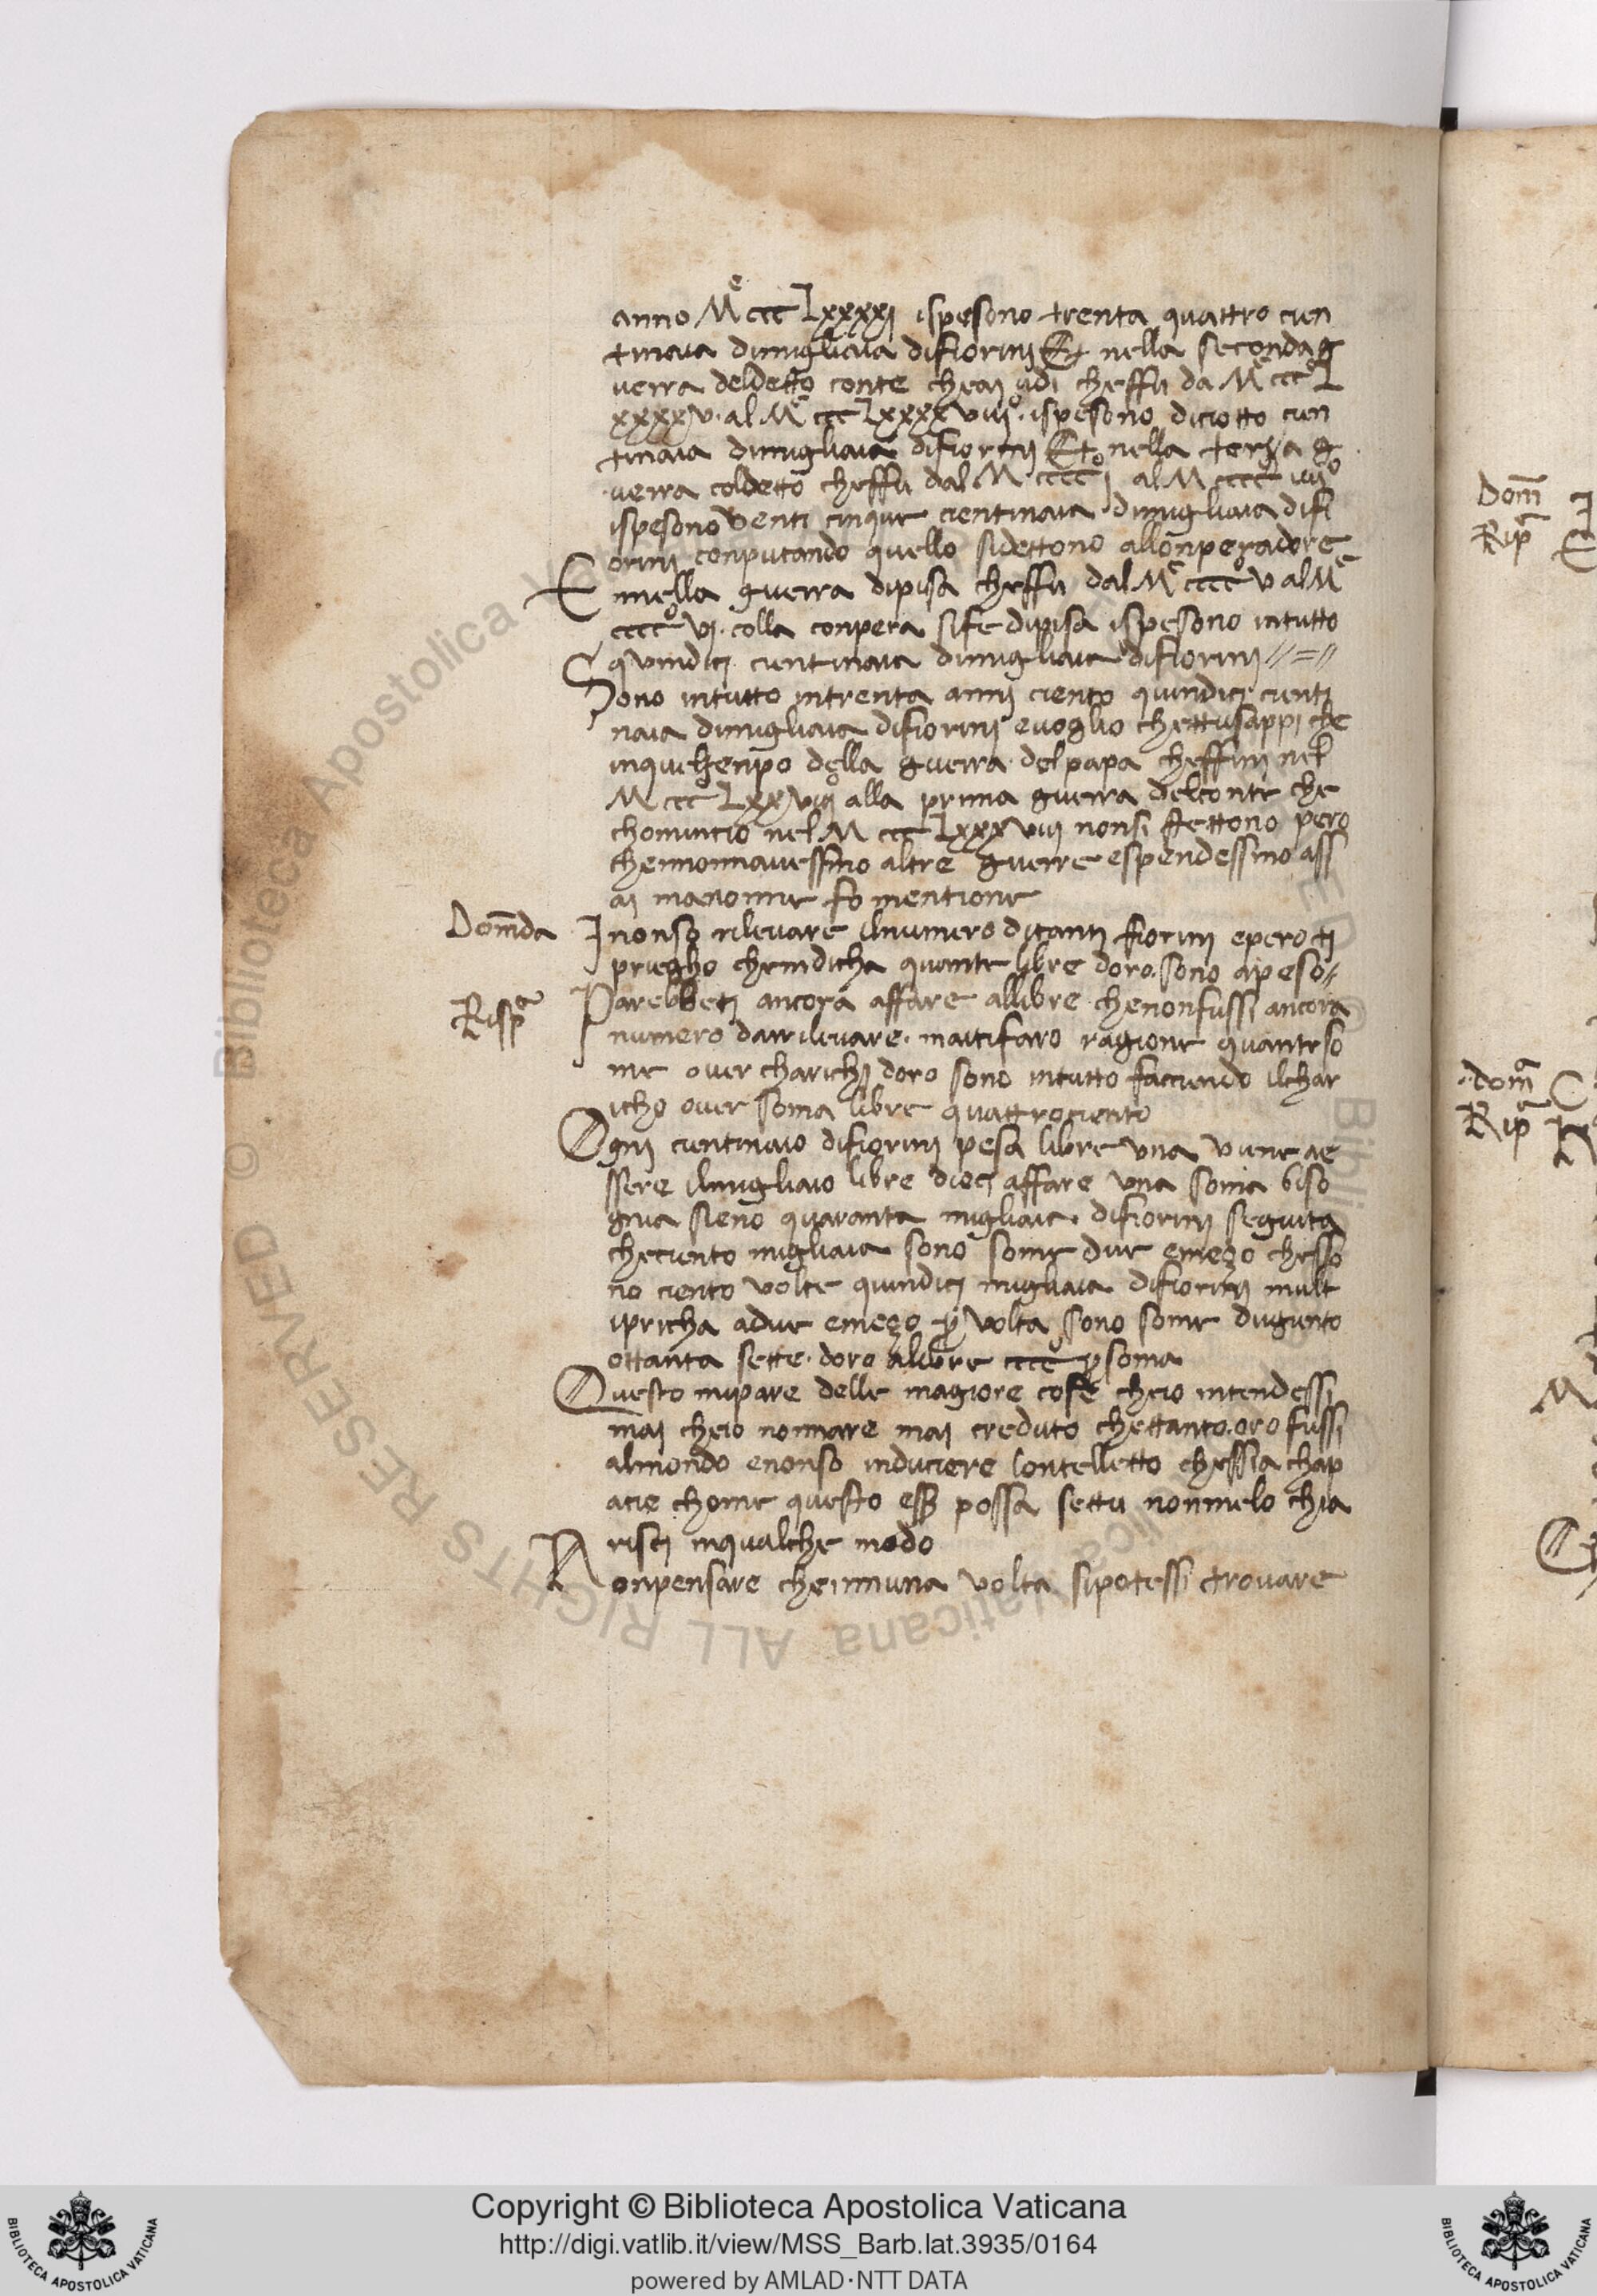 anno Mͤ ccc Lxxxxj ispesono trenta quattro cien
tinaia dimigliaia difiorini Et nella seconda g
uerra deldetto conte cheai udi cheffu da Mͤ cccͦ L
xxxxv. al Mͤ ccc Lxxxxviijͦ. ispesono diciotto cien
tinaia dimigliaia difiorini Et nella terza g
uerra coldetto cheffu dal M ccccͦ j al M cccc iiijͦ
ispesono venti cinque cientinaia dimigliaia difi
orini conputando quello sidettono allonperadore
E nnella guerra dipisa cheffu dal Mͤ ccccͦ v al Mͤ
ccccͦ vj. colla conpera sife dipisa ispesono intutto
quindici cientinaia dimigliaia difiorini //=//
Sono intutto intrenta anni ciento quindici cienti
naia dimigliaia difiorini evoglio chettusappi che
inquel tenpo della guerra del papa cheffu nel
M cccͦ Lxxviij alla prima guerra delconte che
chomincio nel M ccc Lxxxviiij nonsi stettono pero
chennonnavessino altre guerre espendessino assi
ai manonne fo mentione
Domda Inonso rilevare ilnumero ditanti fiorini epero ti
priegho chemidicha quante libre doro. sono apeso //
Rispᵃ Parebbeti ancora affare allibre chenonfussi ancora
numero darrilevare. maitifaro ragione quanteso
me over charichi doro sono intutto facciendo ilchar
icho over soma libre quattrociento
Ogni cientinaio difiorini pesa libre una viene ae
ssere ilmigliaio libre dieci affare una soma biso
gnia sieno quaranta migliaia. difiorini seguita
checiento migliaia sono some due emeço chesso
no ciento volte quindici migliaia difiorini mult
ipricha adue emeço ꝑ volta sono some dugiento
ottanta sette. doro alibre ccccͦ ꝑ soma
Questo mipare delle magiore cose cheio intendessi
mai cheio nonnare mai creduto chettanto. oro fussi
almondo enonso inducere lontelletto chessia chap
acie chome questo esß possa settu nonmelo chia
risci inqualche modo
Nonpensare cheinnuna volta sipotessi trovare